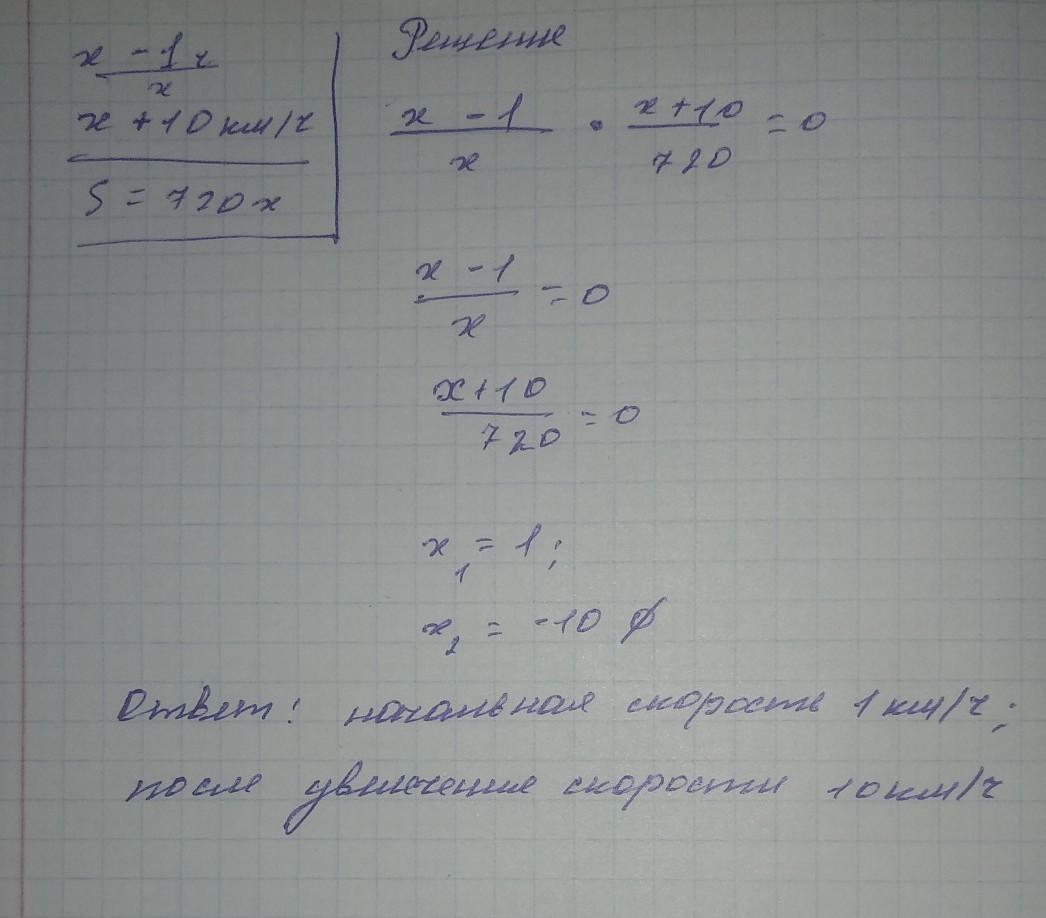 x - 1 ч
x
x + 10 км/ч
S = 720 x
Решение
x - 1 / x · x + 10 / 720 = 0
x - 1 / x = 0
x + 10 / 720 = 0
x₁ = 1;
x₂ = -10 ∅
Ответ: начальная скорость 1 км/ч;
после увеличения скорости 10 км/ч